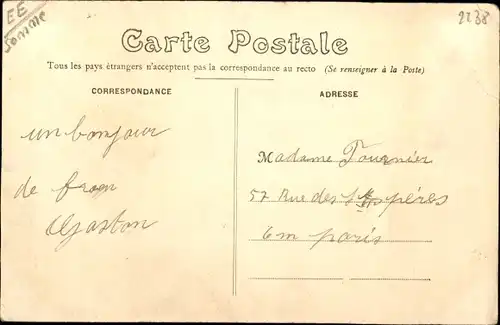 EE
Somme
2238
Carte Postale
Tous les pays étrangers n'acceptent pas la correspondance au recto (Se renseigner à la Poste)
CORRESPONDANCE
un bonjour
de
Gaston
ADRESSE
Madame Fournier
57 Rue des Sts pères
6m paris